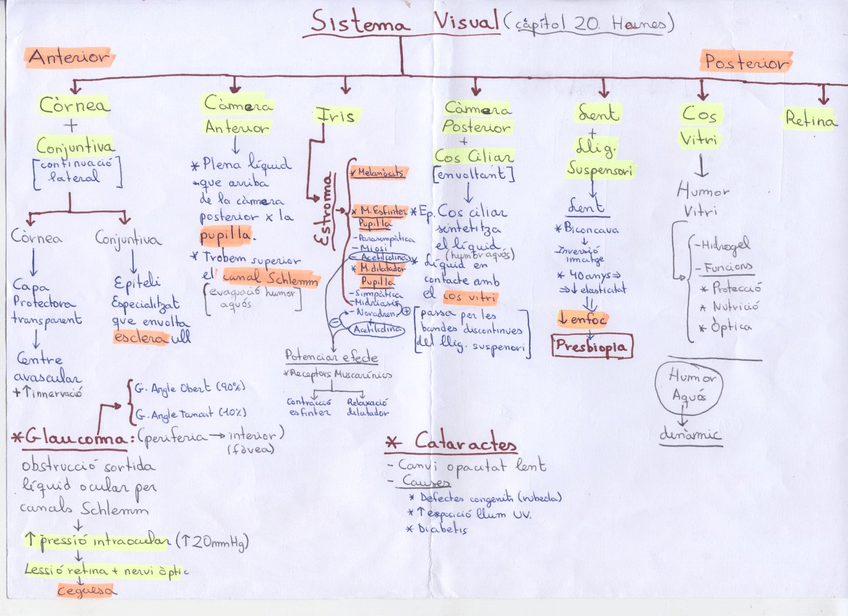 Sistema Visual (capítol 20. Haines)
Anterior
Posterior
Còrnea
+
Conjuntiva
[continuació
lateral]
Còrnea
Conjuntiva
Capa
Protectora
transparent
Centre
avascular
+ ↑ innervació
Epiteli
Especialitzat
que envolta
esclera ull
Càmera
Anterior
* Plena líquid
que arriba
de la càmera
posterior x la
pupilla.
* Trobem superior
el canal Schlemm
[evacuació humor
aquós]
Iris
Estroma
* Melanòcits
* M. Esfínter
Pupilla
- Parasimpàtica
- Miosi
- Acetilcolina
* M. dilatador
Pupilla
- Simpàtica
- Midriasis
- Noradren +
- Acetilcolina
Potenciar efecte
* Receptors Muscarínics
Contracció
esfinter
Relaxació
dilatador
Càmera
Posterior
+
Cos Ciliar
[envoltant]
* Ep. Cos ciliar
sintetitza
el líquid
(humor aquós)
* Líquid en
contacte amb
el cos vitri
[passa per les
bandes discontinues
del llig. suspensori]
Lent
+
Llig.
Suspensori
Lent
* Biconcava
Inversió
imatge
* 40 anys ⇒
⇒ ↓ elasticitat
↓ enfoc
Presbiopia
Cos
Vitri
Humor
Vitri
- Hidrogel
- Funcions
* Protecció
* Nutrició
* Òptica
Humor
Aquós
dinàmic
Retina
G. Angle Obert (90%)
G. Angle Tancat (10%)
* Glaucoma: (perifèria → interior)
(fòvea)
obstrucció sortida
líquid ocular per
canals Schlemm
↑ pressió intraocular (↑ 20mmHg)
Lessió retina + nervi òptic
ceguesa
* Cataractes
- Canvi opacitat lent
- Causes
* Defectes congenits (rubeola)
* ↑ exposició llum UV.
* Diabetis